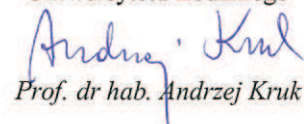 Andrzej Kruk
Prof. dr hab. Andrzej Kruk